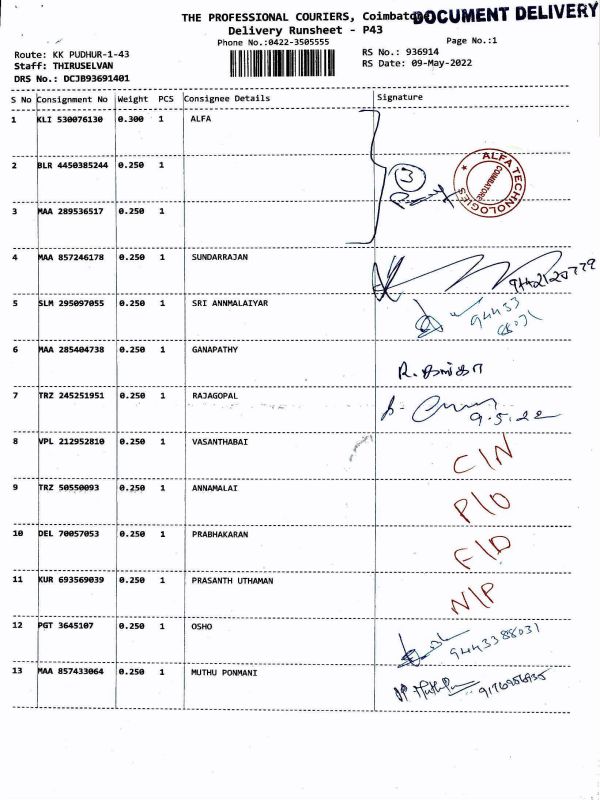 THE PROFESSIONAL COURIERS, Coimbatore
DOCUMENT DELIVERY
Delivery Runsheet - P43
Phone No.:0422-3505555
Page No.:1
Route: KK PUDHUR-1-43
RS No.: 936914
Staff: THIRUSELVAN
RS Date: 09-May-2022
DRS No.: DCJB93691401
S No Consignment No Weight PCS Consignee Details Signature
1 KLI 530076130 0.300 1 ALFA
2 BLR 4450385244 0.250 1
3
ALFA TECHNOLOGIES
COIMBATORE
3 MAA 289536517 0.250 1
4 MAA 857246178 0.250 1 SUNDARRAJAN
5 SLM 295097055 0.250 1 SRI ANNMALAIYAR
94433
88031
6 MAA 285404738 0.250 1 GANAPATHY
R.
7 TRZ 245251951 0.250 1 RAJAGOPAL
9.5.22
8 VPL 212952810 0.250 1 VASANTHABAI C/N
9 TRZ 50550093 0.250 1 ANNAMALAI P/O
10 DEL 70057053 0.250 1 PRABHAKARAN F/D
11 KUR 693569039 0.250 1 PRASANTH UTHAMAN N/P
12 PGT 3645107 0.250 1 OSHO 9443388031
13 MAA 857433064 0.250 1 MUTHU PONMANI 9176956935